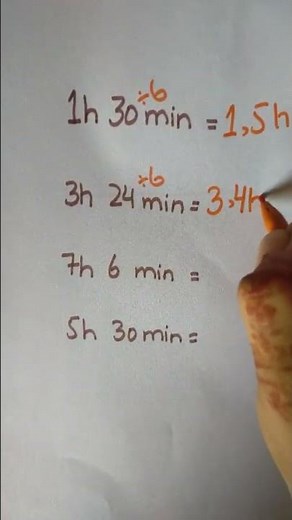 ÷6
1h 30 min = 1,5h
÷6
3h 24 min = 3,4h
7h 6 min =
5h 30min=